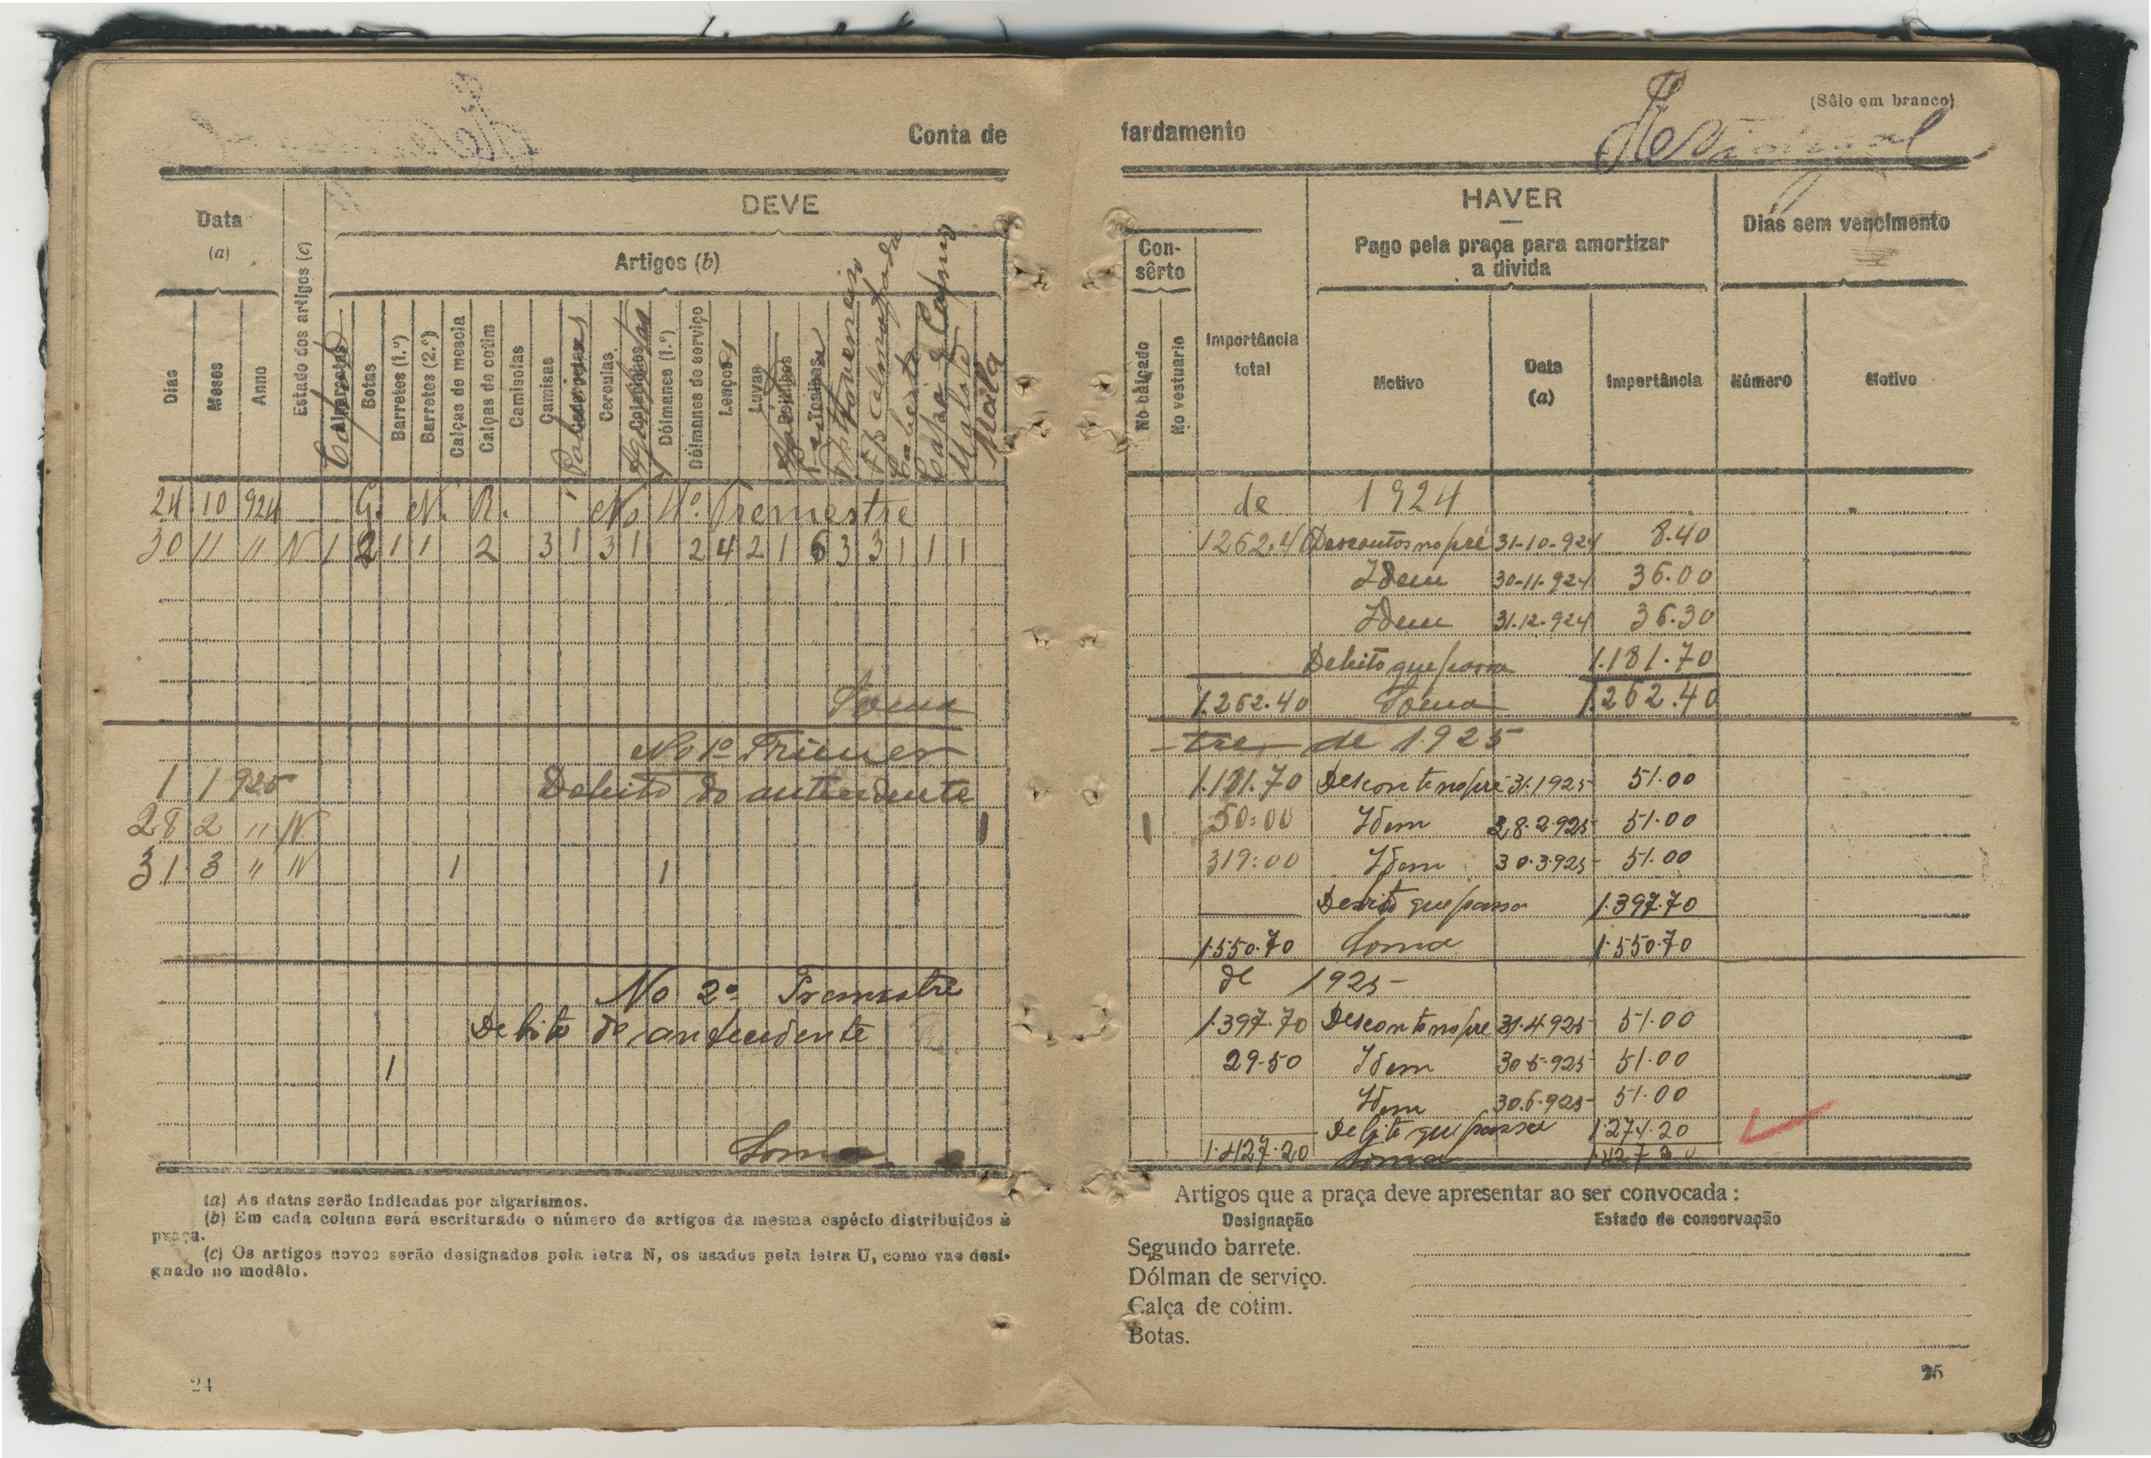 Conta de
DEVE
Data
(a)
Artigos (b)
Dias
Meses
Anno
Estado dos artigos (c)
Botas
Barretes (1.º)
Barretes (2.º)
Calças de mescla
Calças de cotim
Camisolas
Camisas
Ceroulas
Dólmanes (1.º)
Dólmanes de serviço
Lenços
Luvas
Capa de Capuz
Mala
24 10 924 G. N. R. No 4º. Tremestre
30 11 11 N 1 2 1 1 2 3 1 3 1 2 4 2 1 6 3 3 1 1 1
Soma
No 1º Trimes
1 1 925 Debito do antecedente
28 2 11 N 1
31 3 11 N 1 1
No 2º Tremestre
Debito de antecedente
1
Soma
(a) As datas serão indicadas por algarismos.
(b) Em cada coluna será escriturado o número de artigos da mesma espécie distribuídos à
praça.
(c) Os artigos novos serão designados pela letra N, os usados pela letra U, como vae desi-
gnado no modêlo.
24
(Sêlo em branco)
fardamento
HAVER
Con-
sêrto
Pago pela praça para amortizar
a divida
Dias sem vencimento
No calçado
No vestuario
Importância
total
Motivo
Data
(a)
Importância
Número
Motivo
de 1924
1262.40 Descontos no pré 31-10-924 8.40
Idem 30-11-924 36.00
Idem 31-12-924 36.30
Debito que passa 1.181.70
1.262.40 Soma 1.262.40
tre de 1925
1.181.70 Desconto no pré 31.1925 51.00
1 50:00 Idem 28.2.925 51.00
319:00 Idem 30.3.925 51.00
Debito que passa 1.397.70
1.550.70 Soma 1.550.70
de 1925
1.397.70 Desconto no pré 31.4.925 51.00
29.50 Idem 30.5.925 51.00
Idem 30.6.925 51.00
Debito que passa 1.274.20
1.427.20 Soma 1.427.20
Artigos que a praça deve apresentar ao ser convocada:
Designação Estado de conservação
Segundo barrete.
Dólman de serviço.
Calça de cotim.
Botas.
25